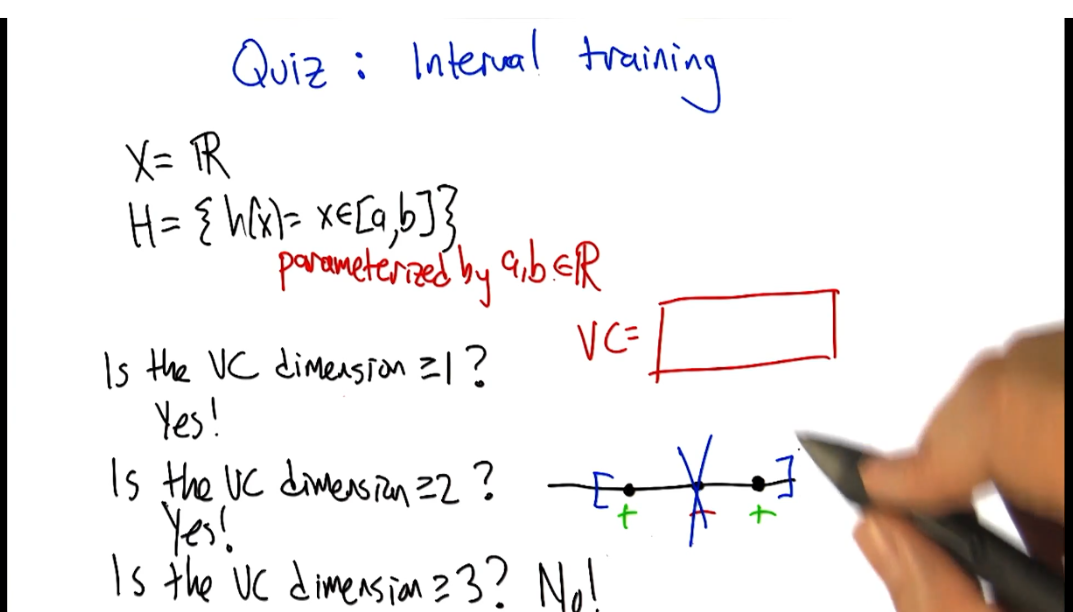 Quiz : Interval training
X = ℝ
H = { h(x) = x∈[a,b] }
parameterized by a,b ∈ ℝ
VC =
Is the VC dimension ≥1 ?
Yes!
[ ]
Is the VC dimension ≥2 ?
+ - +
Yes!
Is the VC dimension ≥ 3 ? No!